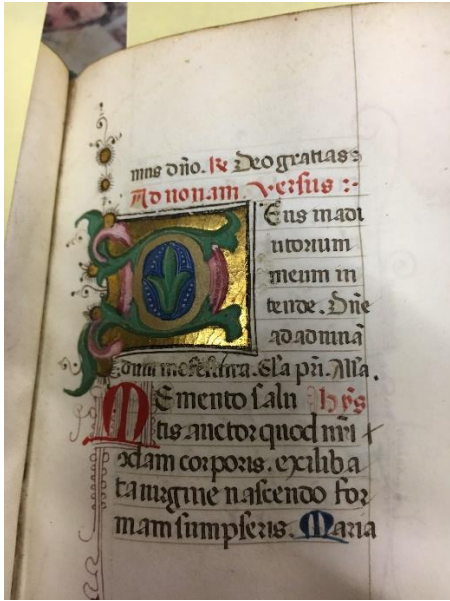 mus dño. ℟ Deo gratias
Ad nonam versus :-
Eus in adi
utorium
meum in
tende. Dñe
ad adiuuā
dum me festina. Gľa pñ. Alľa.
Memento salu hỹs
tis auctor quod nr̄i
xdam corporis. ex iliba
ta uirgine nascendo for
mam sumpseris. Maria